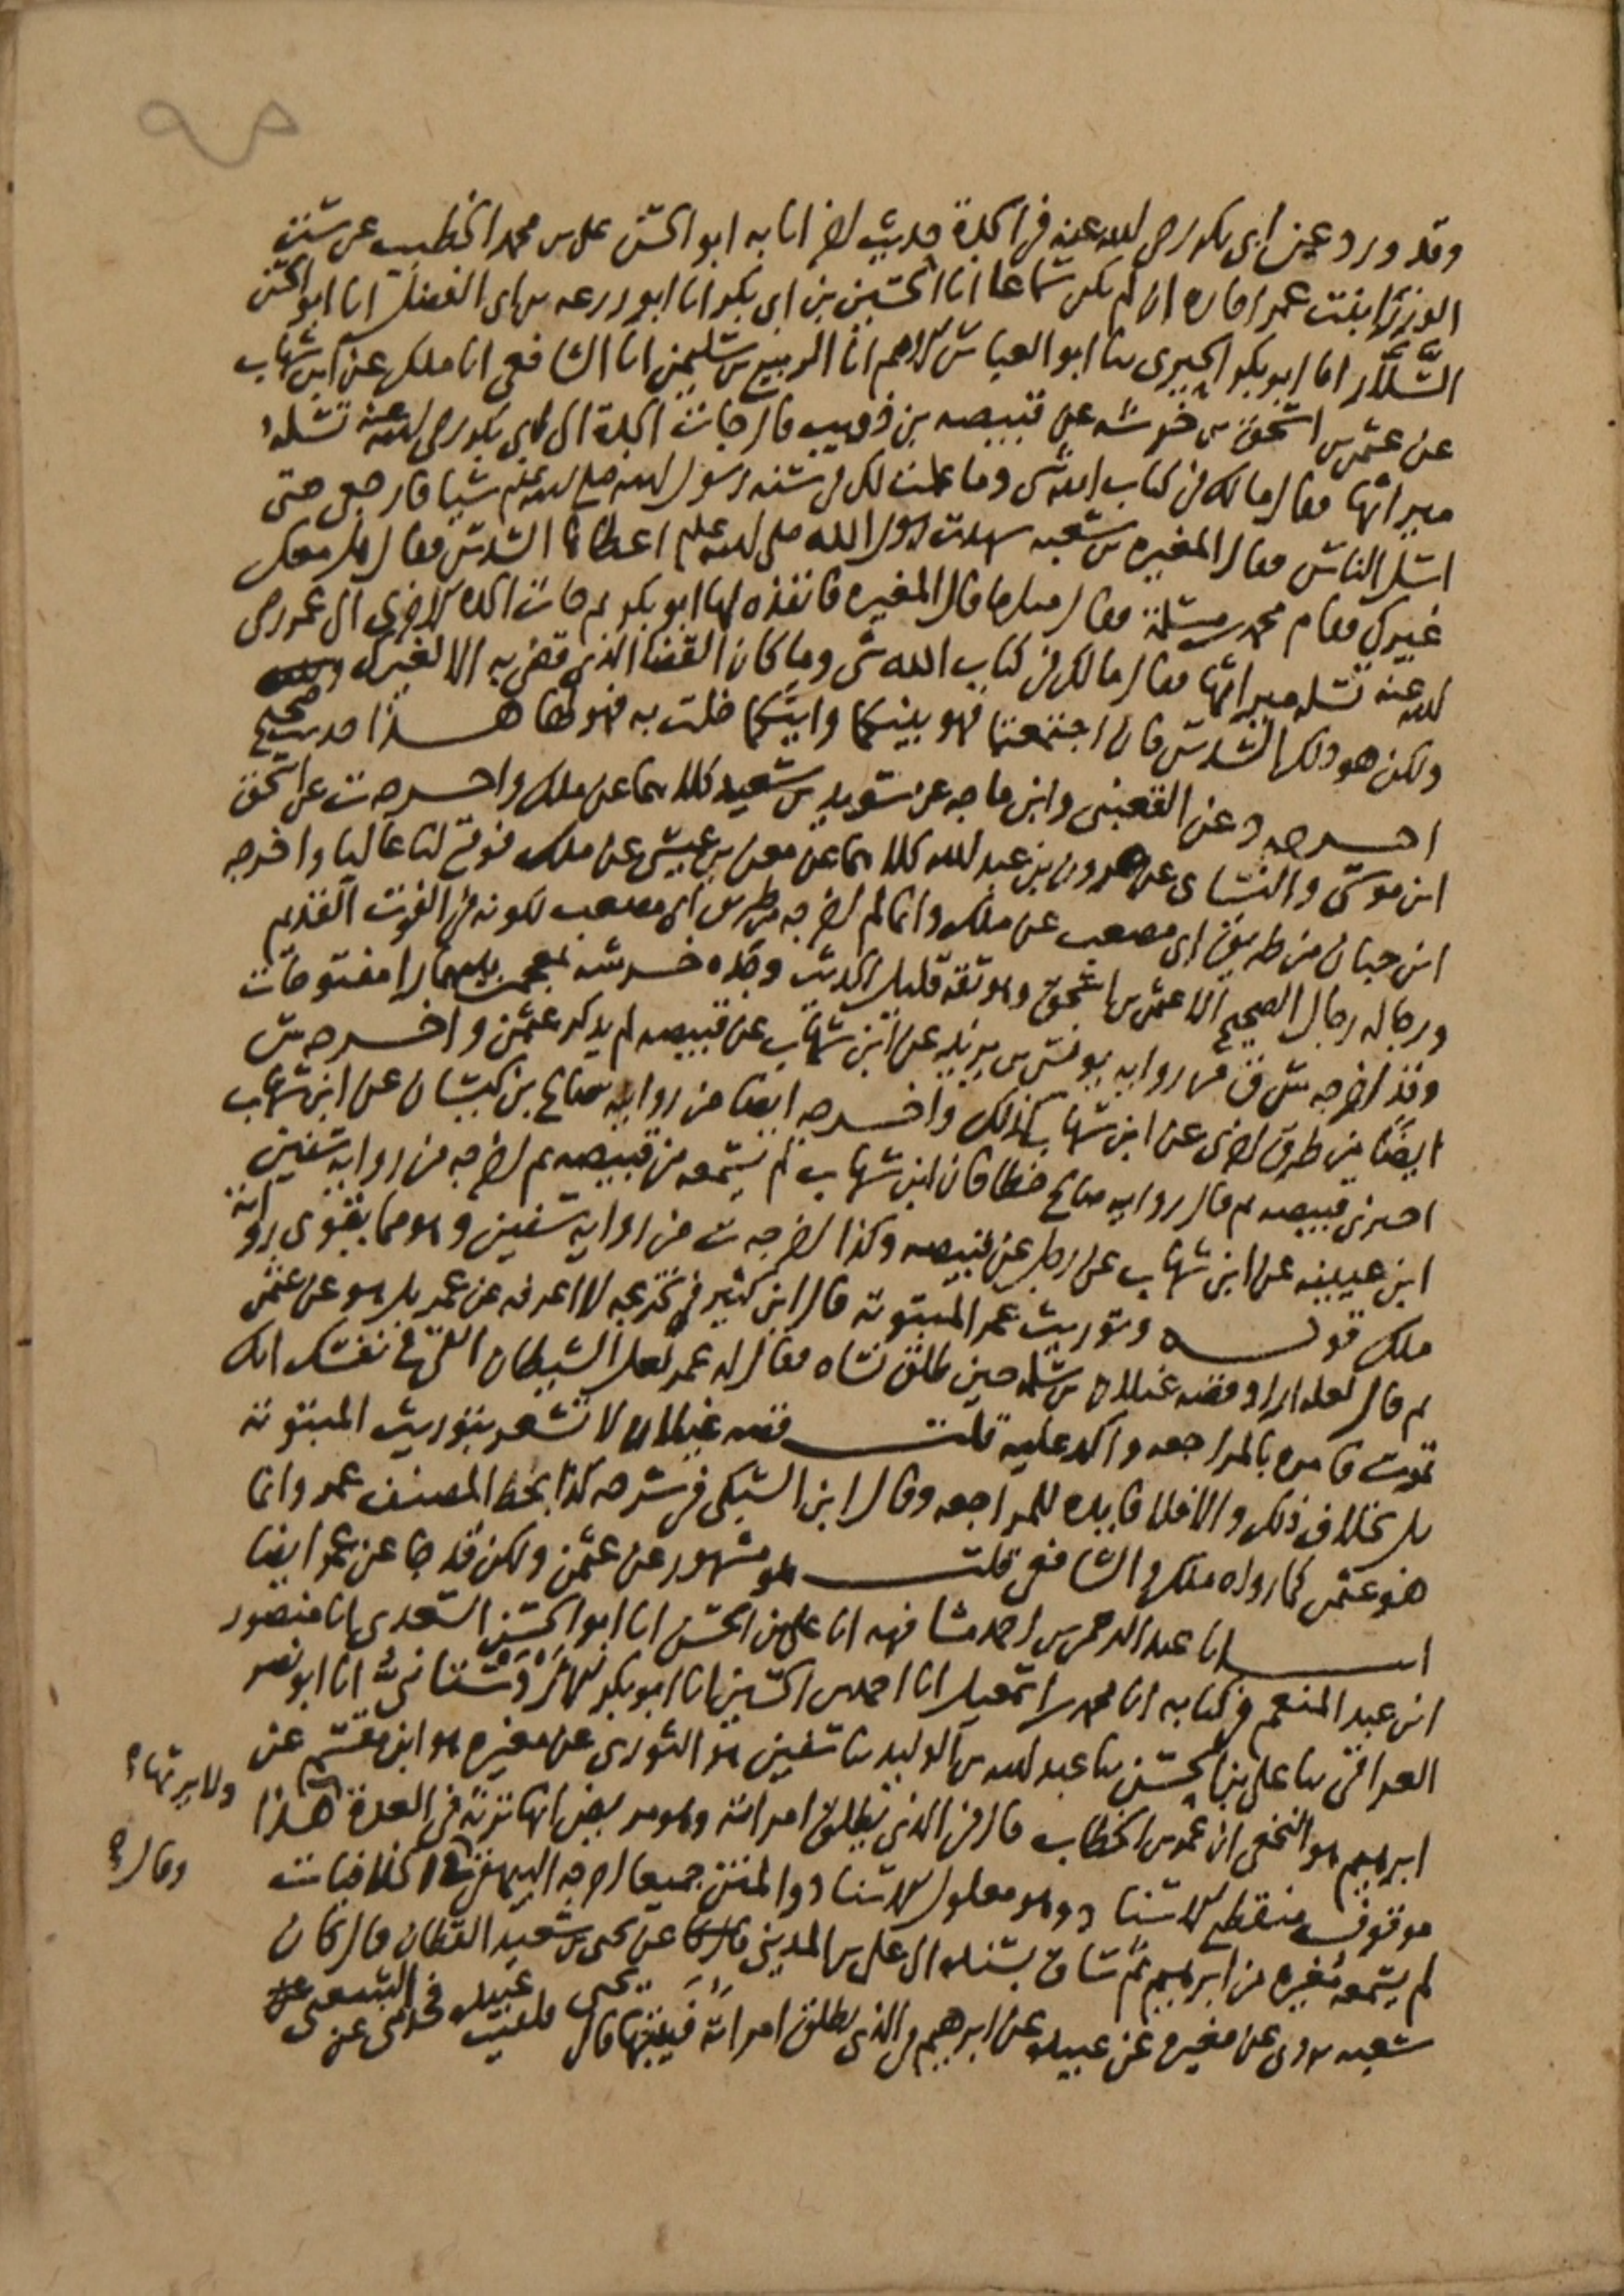 وقد ورد عن ابى بكر رضى الله عنه فى الجدة حديث اخر انا به ابو الحسن على بن محمد الخطيب عن ست
الوزرا بنت عمر اجازه ان لم يكن سماعا انا الحسين بن ابى بكر انا ابو زرعه بن ابى الفضل انا ابو الحسن
السلار انا ابو بكر الحيرى ثنا ابو العباس الاصم انا الربيع بن سليمن انا الشافعى انا ملك عن ابن شهاب
عن عثمن بن اسحق بن خرشه عن قبيصه بن ذويب قال جات الجدة الى ابى بكر رضى الله عنه تسله
ميراثها فقال مالك فى كتاب الله شى وما علمت لك فى سنه رسول الله صلى الله عليه وسلم شيا فارجعى حتى
اسل الناس فقال المغيره بن شعبه شهدت رسول الله صلى الله عليه وسلم اعطاها السدس فقال هل معك
غيرك فقام محمد بن مسلمة فقال مثل ما قال المغيره فانفذه لها ابو بكر ثم جات الجده الاخرى الى عمر رضى
الله عنه تسله ميراثها فقال مالك فى كتاب الله شى وما كان القضا الذى قضى به الا لغيرك
ولكن هو ذلك السدس فان اجتمعتما فهو بينكما وايتكما خلت به فهو لها هذا حديث صحيح
اخرجه د عن القعنبى وابن ماجه عن سويد بن سعيد كلاهما عن ملك واخرجه ت عن اسحق
ابن موسى والنساى عن هرون بن عبد الله كلاهما عن معن بن عيسى عن ملك فوقع لنا عاليا واخرجه
ابن حبان من طريق ابى مصعب عن ملك وانما لم اخرجه من طريق ابى مصعب لكونه فى الفوت القديم
ورجاله رجال الصحيح الا عثمن بن اسحق وهو ثقة قليل الحديث وجده خرشه بمعجمتين بينهما را مفتوحات
وقد اخرجه س ق من روايه يونس بن يزيد عن ابن شهاب عن قبيصه لم يذكر عثمن واخرجه س
ايضا من طرق اخرى عن ابن شهاب كذلك واخرجه ايضا من روايه صالح بن كيسان عن ابن شهاب
اخبرنى قبيصه ثم قال روايه صالح خطا فان ابن شهاب لم يسمعه من قبيصه ثم اخرجه من روايه سفين
ابن عيينه عن ابن شهاب عن رجل عن قبيصه وكذا اخرجه ت من روايه سفين وهو مما يقوى رواية
ملك قوله وتوريث عمر المبتوته قال ابن كثير فى تخريجه لا اعرفه عن عمر بل هو عن عثمن
ثم قال لعله اراد قصه غيلان بن سلمه حين طلق نساه فقال له عمر لعل الشيطان القى فى نفسك انك
تموت فامره بالمراجعه واكد عليه قلت قصه غيلان لا تشعر بتوريث المبتوته
بل بخلاف ذلك والا فلا فايده للمراجعه وقال ابن السبكى فى شرحه كذا بخط المصنف عمر وانما
هو عثمن كما رواه ملك والشافعى قلت هو مشهور عن عثمن ولكن قد جا عن عمر ايضا
انا عبد الرحمن بن احمد مشافهه انا على بن الحسن انا ابو الحسن السعدى انا منصور
ابن عبد المنعم فى كتابه انا محمد بن اسمعيل انا احمد بن الحسين انا ابو بكر الاردستانى انا ابو نصر
العراقى ثنا على بن الحسن ثنا عبد الله بن الوليد ثنا سفين هو الثورى عن مغيره هو ابن مقسم عن
ابرهيم هو النخعى ان عمر بن الخطاب قال فى الذى يطلق امراته وهو مريض انها ترثه فى العدة هذا
ولا يرثها ؟
موقوف منقطع الاسناد وهو معلول الاسناد والمتن جميعا اخرجه البيهقى فى الخلافيات
وقال
لم يسمعه مغيره من ابرهيم ثم ساق بسنده الى على بن المدينى عن يحيى بن سعيد القطان قال كان
شعبه يروى عن مغيره عن عبيده عن ابرهيم فى الذى يطلق امراته فيبتها قال يحيى فلقيت عبيده فحدثنى عن الشعبى